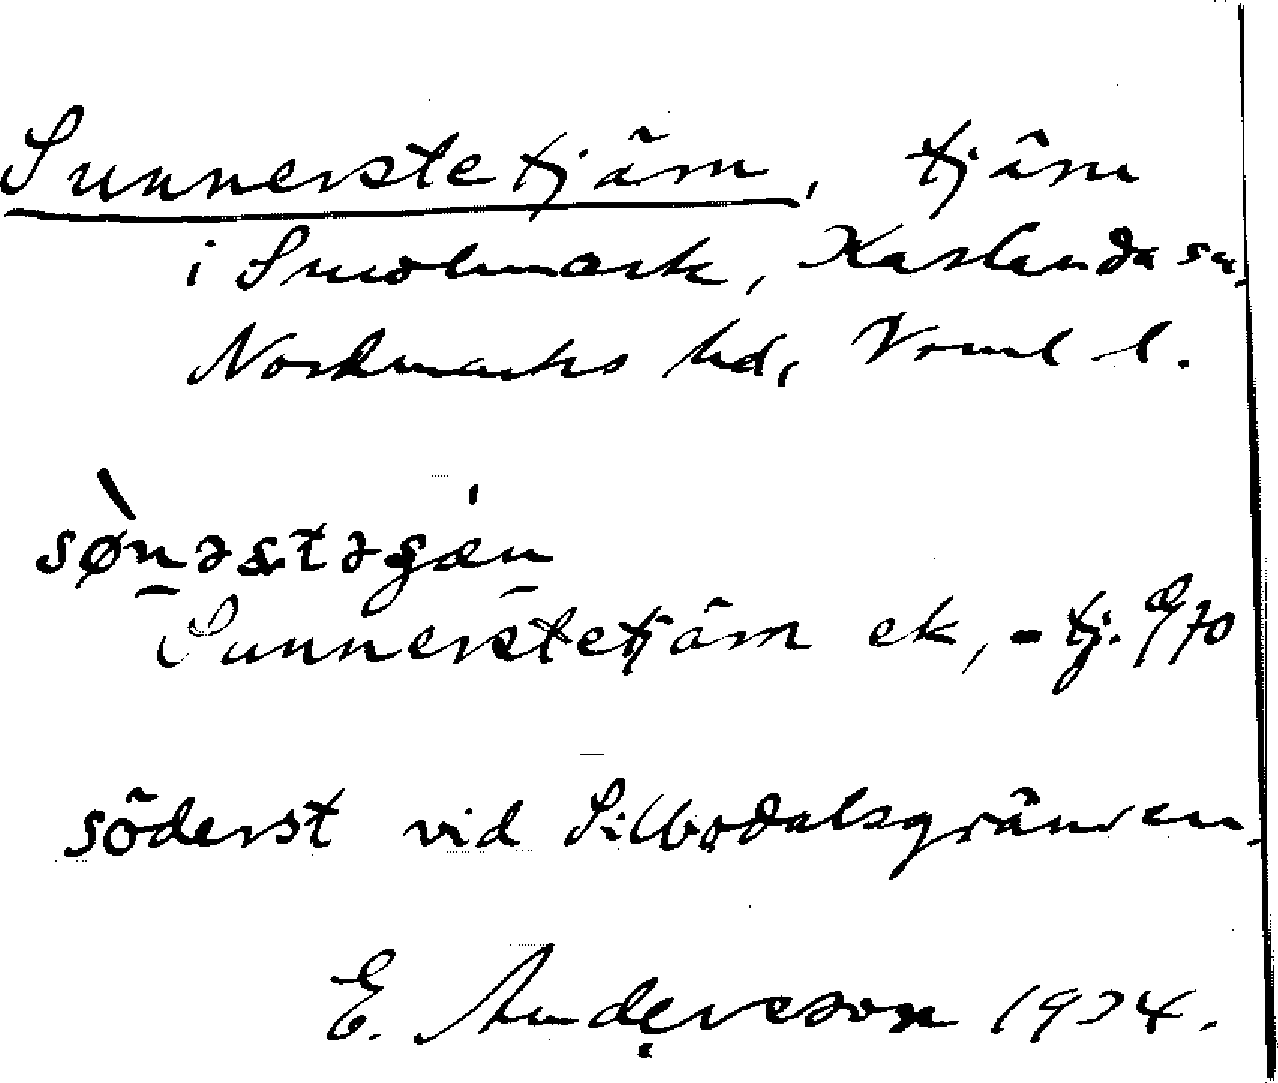 Sunnerstetjärn, tjärn
i Smolmark, Karlanda sn,
Nordmarks hd, Vrml l.
sø̀nəstəʂæn
Sunnerstetjärn ek, - tj.
söderst vid Silbodalsgränsen,
E. Andersson 1934.